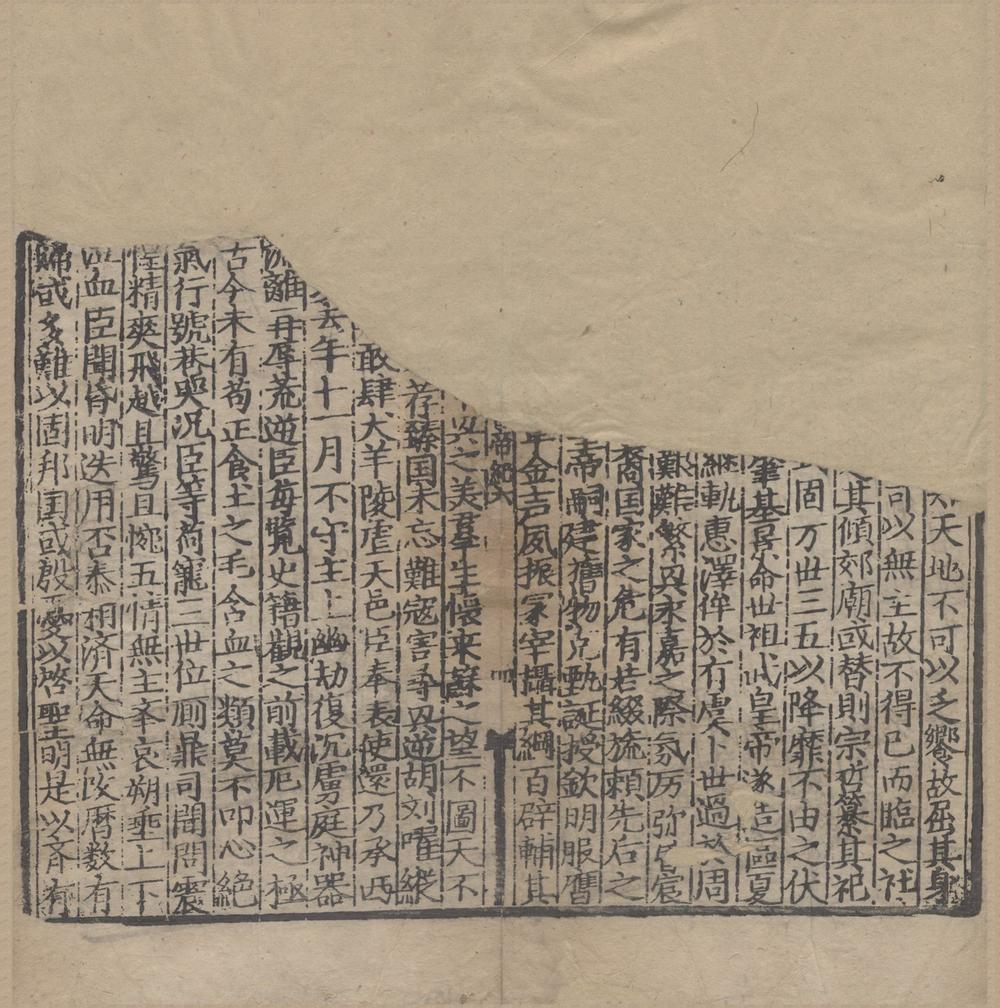 天地不可以乏饗故屈其身
可以無主故不得已而臨之社
其傾郊廟或替則宗哲纂其祀
固万世三五以降靡不由之伏
肇基景命世祖武皇帝遂造區夏
継軌惠澤侔於有虞卜世過於周
艱難繁興永嘉之際氛厉弥昏宸
裔国家之危有若綴旒頼先后之
皇帝嗣建舊物克甄誕授欽明服膺
年金声夙振冡宰攝其綱百辟輔其
帝紀六
興之美羣生懷来蘇之望不圖天不
荐臻国未忘難寇害尋興逆胡刘曜縱
敢肆犬羊陵虐天邑臣奉表使還乃承西
去年十一月不守主上幽劫復沉虜庭神器
流離再辱荒逆臣每覽史籍觀之前載厄運之極
古今未有苟正食土之毛含血之類莫不叩心絕
氣行號巷哭况臣等荷寵三世位厠鼎司聞問震
惶精爽飛越且驚且惋五情無主举哀朔垂上下
泣血臣聞昏明迭用否泰相济天命無改曆数有
歸或多難以固邦国或殷憂以啓聖明是以斉有